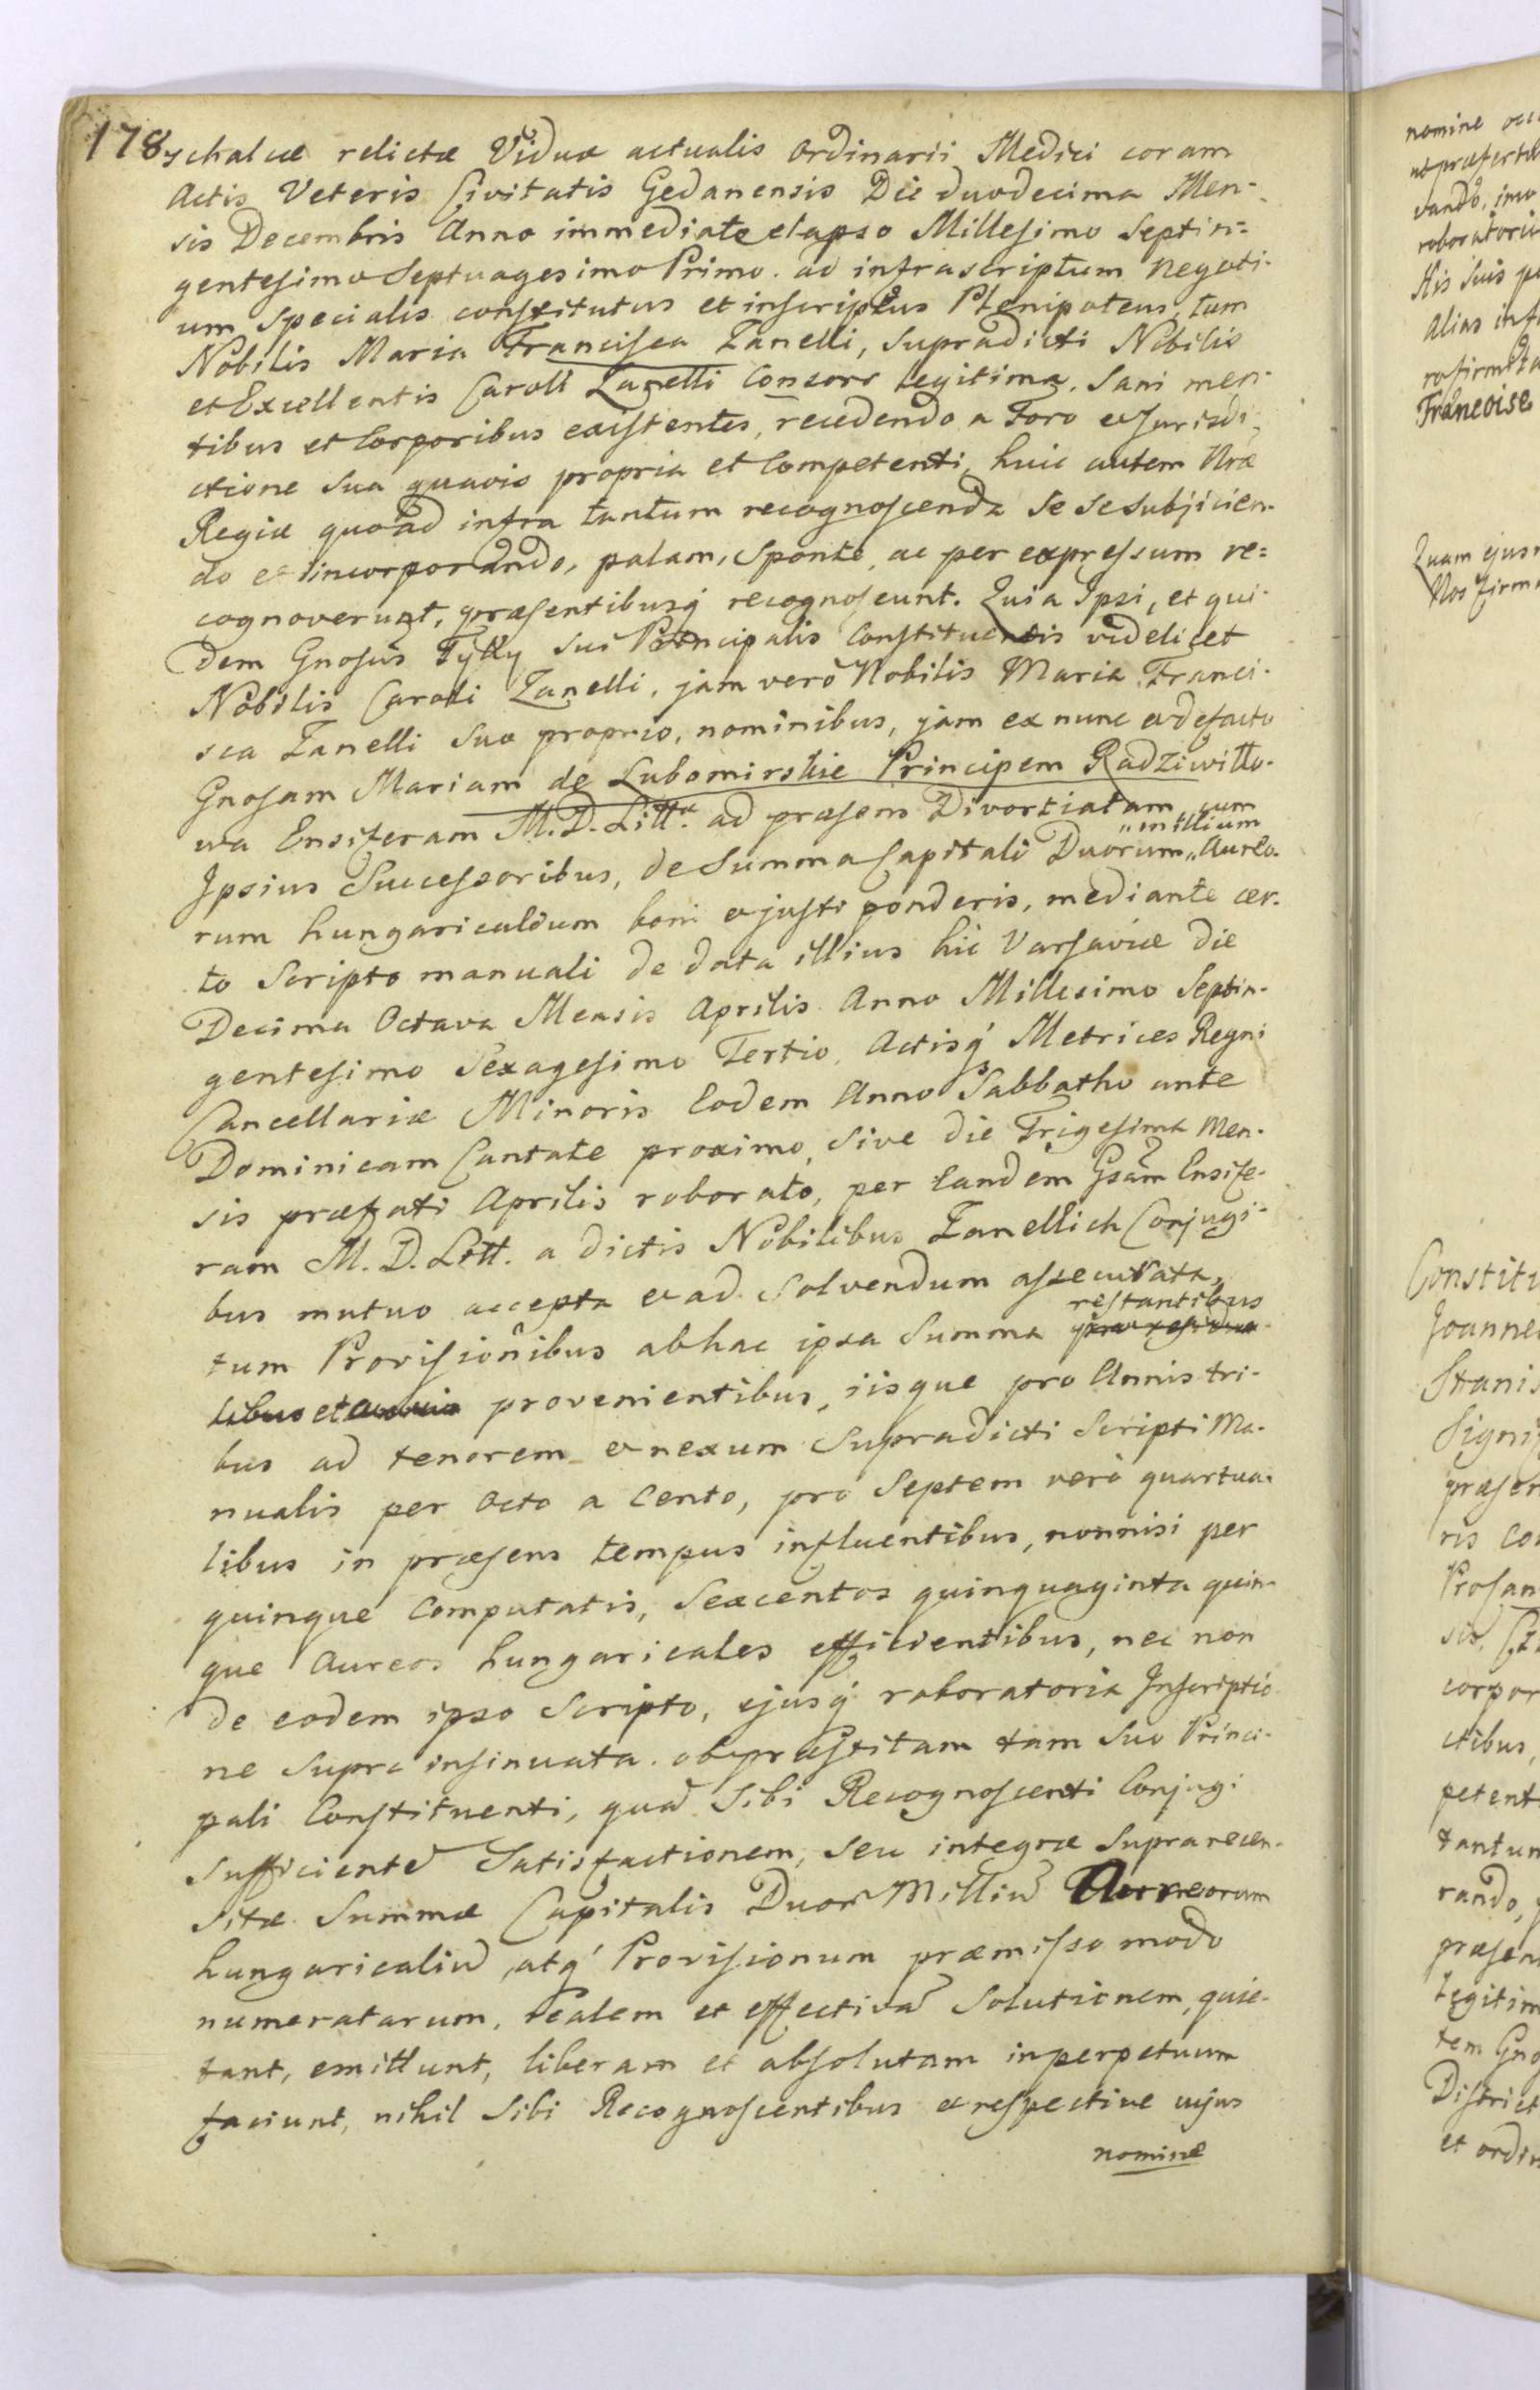 178 schalcæ relictæ Viduæ actualis Ordinarii Medici coram
Actis Veteris Civitatis Gedanensis Die duodecima Men-
sis Decembris Anno immediate elapso Millesimo Septin=
gentesimo Septuagesimo Primo. ad infrascriptum negoti-
um Specialis constitutus et inscriptus Plenipotens, tum
Nobilis Maria Francisca Zanelli, Supradicti Nobilis
et Excellentis Caroli Zanelli Consors legitima, Sani men-
tibus et Corporibus existentes, recedendo a Foro et Jurisdi-
ctione Sua quavis propria et Competenti, huic autem Nræ
Regiæ quoad infra tantum recognoscenda Se se subjicien-
do et incorporando, palam, Sponte, ac per expressum re=
cognoverunt, præsentibusq recognoscunt. Quia Ipsi, et qui-
dem Gnosus Tylly Sui Principalis Constituentis videlicet
Nobilis Caroli Zanelli, jam verò Nobilis Maria Franci-
sca Zanelli Suo proprio, nominibus, jam ex nunc et defacto
Gnosam Mariam de Lubomirskie Principem Radziwiłło-
wa Ensiferam M. D. Litt. ad præsens Divortiatam, cum
Ipsius Successoribus, de Summa Capitali Duorum "millium" Aureo-
rum hungaricalium boni et justi ponderis, mediante cer-
to Scripto manuali de data illius hic Varsaviæ die
Decima Octava Mensis Aprilis Anno Millesimo Septin-
gentesimo Sexagesimo Tertio, Actisq Metrices Regni
Cancellariæ Minoris Eodem Anno Sabbatho ante
Dominicam Cantate proximo, Sive die Trigesima Men-
sis præfati Aprilis roborato, per Eandem Gsam Ensife-
ram M. D. Litt. a dictis Nobilibus Zanellich Conjugi-
bus mutuo accepta et ad Solvendum assecurata,
tum Provisionibus ab hac ipsa Summa restantibus
libus et provenientibus, iisque pro Annis tri-
bus ad tenorem et nexum Supradicti Scripti Ma-
nualis per Octo a Cento, pro Septem verò quartua-
libus in præsens tempus influentibus, nonnisi per
quinque Computatis, Sexcentos quinquaginta quin-
que Aureos hungaricales efficientibus, nec non
de eodem ipso Scripto, ejusq roboratoria Inscriptio-
ne Supra insinuata. ob præstitam tam Suo Princi-
pali Constituenti, quã Sibi Recognoscenti Conjugi
Sufficientẽ Satisfactionem, Seu integræ Suprarecen-
sitæ Summæ Capitalis Duor Milliũ Aureorum
hungaricaliũ, atq Provisionum præmisso modo
numeratarum, realem et effectivã Solutionem, quie-
tant, emittunt, liberam et absolutam inperpetuum
faciunt, nihil Sibi Recognoscentibus et respective cujus
nomine
nomine
vando, imo
roboratori
Alias inf
Françoise
Quam ejus
Nos firm
Constitu
Joanne
Stanis
Signi
præser
ris co
corpor
ctibus,
petent
tantum
rando,
præsen
legitim
tem Gno
District
et ordin